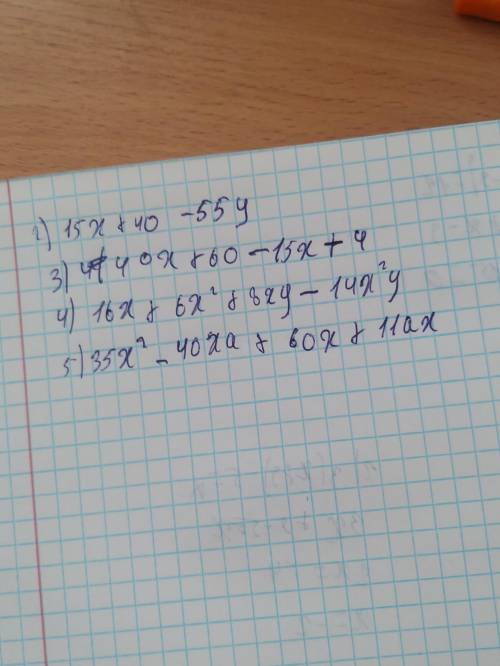 2) 15x + 40 - 55y
3) 40x + 60 - 15x + 4
4) 16x + 6x² + 8xy - 14x²y
5) 35x² - 40xa + 60x + 11ax